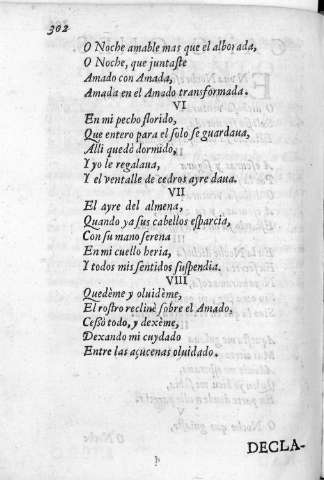 302
O Noche amable mas que el alborada,
O Noche, que juntaſte
Amado con Amada,
Amada en el Amado transformada.
VI
En mi pecho florido,
Que entero para el ſolo ſe guardaua,
Alli quedè dormido,
Y yo le regalaua,
Y el ventalle de cedros ayre daua.
VII
El ayre del almena,
Quando ya ſus cabellos eſparcia,
Con ſu mano ſerena
En mi cuello heria,
Y todos mis ſentidos ſuſpendia.
VIII
Quedème y oluidème,
El roſtro reclinè ſobre el Amado,
Ceßò todo, y dexème,
Dexando mi cuydado
Entre las açucenas oluidado.
DECLA-